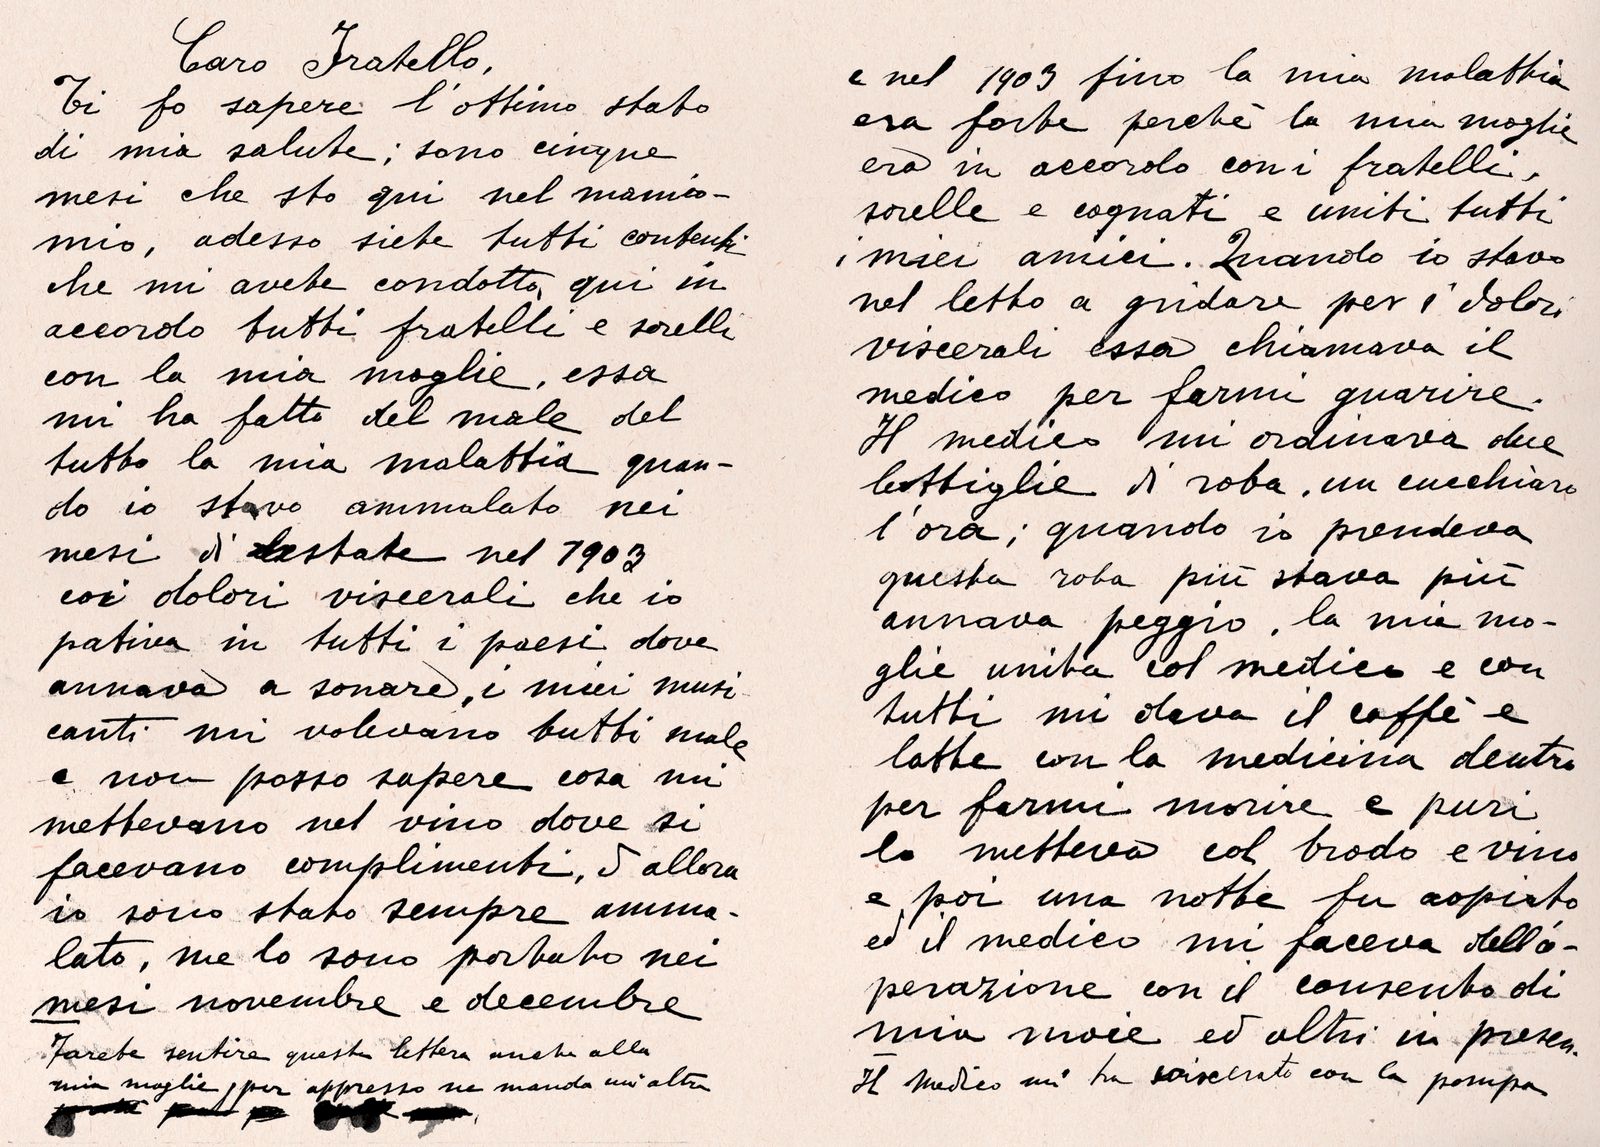 Caro Fratello,
Ti fo sapere l'ottimo stato
di mia salute; sono cinque
mesi che sto qui nel manico-
mio, adesso siete tutti contenti
che mi avete condotto, qui in
accordo tutti fratelli e sorelli
con la mia moglie, essa
mi ha fatto del male del
tutto la mia malattia quan-
do io stavo ammalato nei
mesi di estate nel 1903
coi dolori viscerali che io
pativa in tutti i paesi dove
annava a sonare, i miei musi
canti mi volevano tutti male
e non posso sapere cosa mi
mettevano nel vino dove si
facevano complimenti, d allora
io sono stato sempre amma-
lato, me lo sono portato nei
mesi novembre e decembre
Farete sentire questa lettera anche alla
mia moglie, per appresso ne manda un'altra
e nel 1903 fino la mia malattia
era forte perchè la mia moglie
era in accordo con i fratelli,
sorelle e cognati e uniti tutti
i miei amici. Quando io stavo
nel letto a gridare per i dolori
viscerali essa chiamava il
medico per farmi guarire.
Il medico mi ordinava due
bottiglie di roba, un cucchiaro
l'ora; quando io prendeva
questa roba più stava più
annava peggio, la mia mo-
glie unita col medico e con
tutti mi dava il caffè e
latte con la medicina dentro
per farmi morire e puri
lo metteva col brodo e vino
e poi una notte fu aopiato
ed il medico mi faceva dell'o-
perazione con il consento di
mia moie ed altri in presen.
Il medico mi ha sviscerato con la pompa